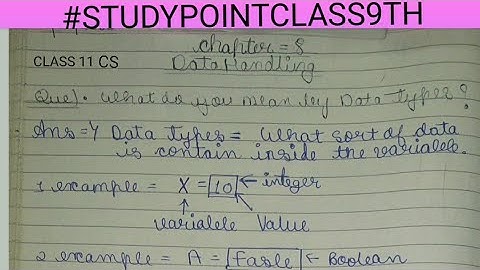 #STUDYPOINTCLASS9TH
chapter = 8
CLASS 11 CS
Data Handling
Que). What do you mean by Data types?
Ans =Y Data types = What sort of data
is contain inside the variable.
1 example = X = 10 ← integer
variable Value
2 example = A = Fasle ← Boolean